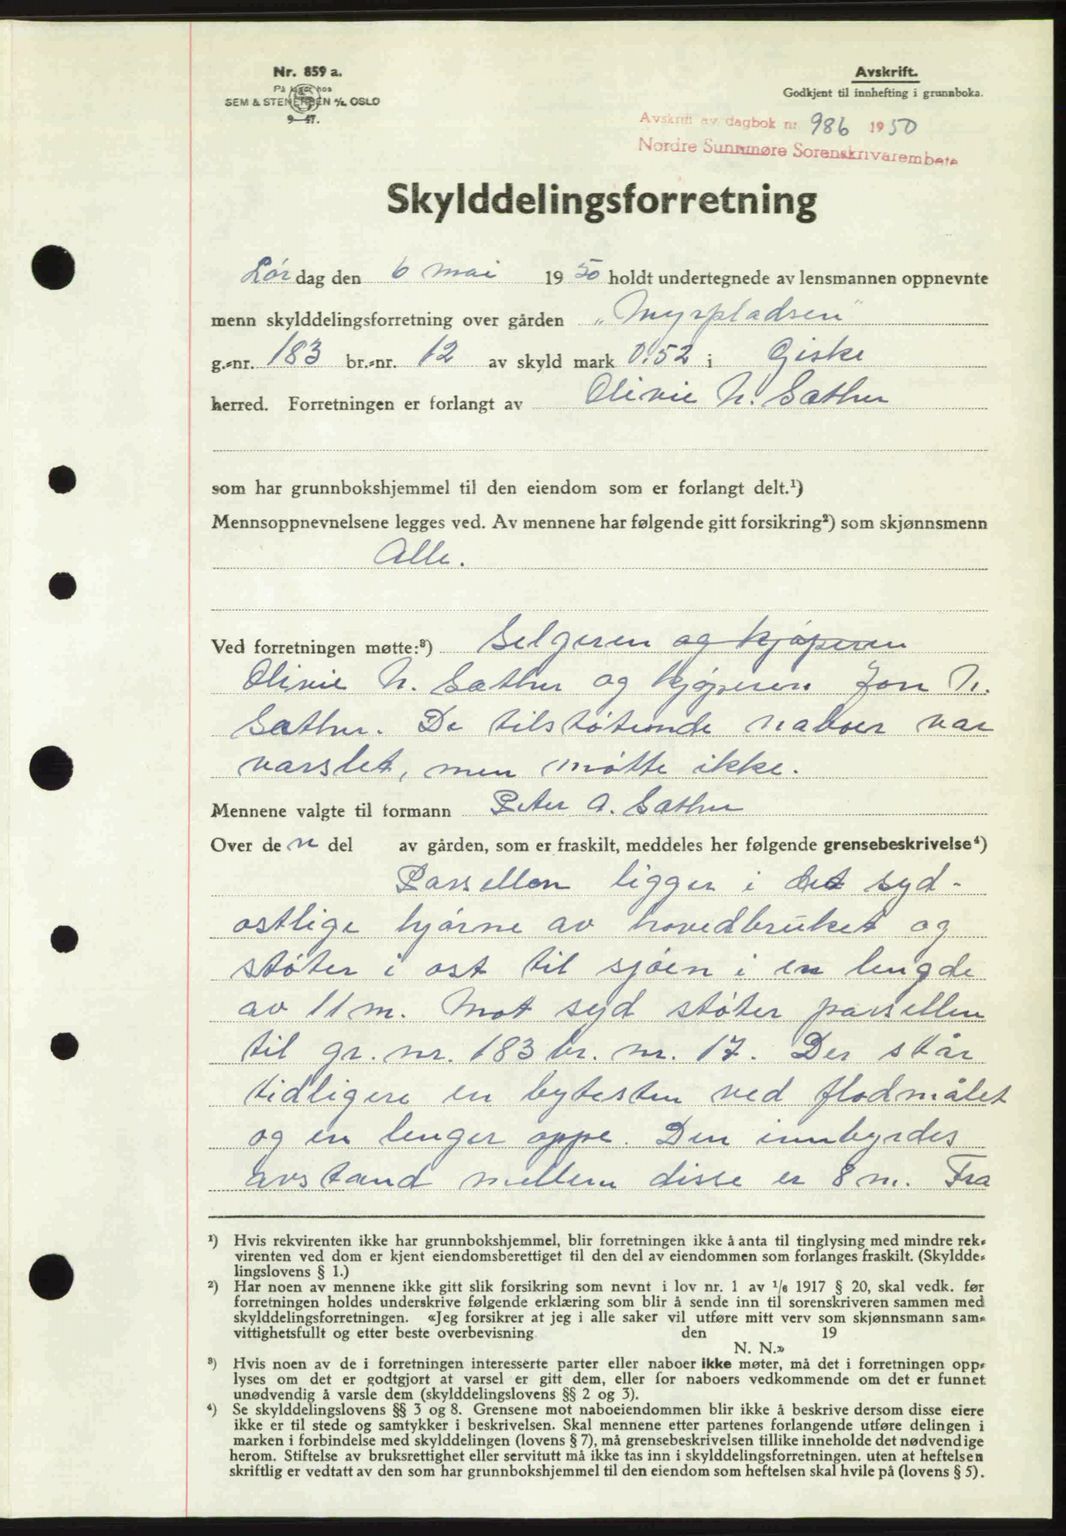 Nr. 859 a.
På lager hos
SEM & STENERSEN A/S, OSLO
9-47.
Avskrift.
Godkjent til innhefting i grunnboka.
Avskrift av dagbok nr 986 1950
Nordre Sunnmøre Sorenskrivarembete
Skylddelingsforretning
Lørdag den 6 mai 1950 holdt undertegnede av lensmannen oppnevnte
menn skylddelingsforretning over gården "Myrpladsen"
g.-nr. 183 br.-nr. 12 av skyld mark 0.52 i Giske
herred. Forretningen er forlangt av Olivie N. Sæther
som har grunnbokshjemmel til den eiendom som er forlangt delt.¹)
Mennsoppnevnelsene legges ved. Av mennene har følgende gitt forsikring²) som skjønnsmenn
Alle.
Ved forretningen møtte:³) Selgeren og kjøperen
Olivie N. Sæther og kjøperen Jon N.
Sæther. De tilstøtende naboer var
varslet, men møtte ikke.
Mennene valgte til formann Peter A. Sæther
Over den del av gården, som er fraskilt, meddeles her følgende grensebeskrivelse⁴)
Parsellen ligger i det syd-
østlige hjørne av hovedbruket og
støter i øst til sjøen i en lengde
av 11 m. Mot syd støter parsellen
til gr. nr. 183 br. nr. 17. Der står
tidligere en bytesten ved flodmålet
og en lenger oppe. Den innbyrdes
avstand mellem disse er 8 m. Fra
¹) Hvis rekvirenten ikke har grunnbokshjemmel, blir forretningen ikke å anta til tinglysing med mindre rek-
virenten ved dom er kjent eiendomsberettiget til den del av eiendommen som forlanges fraskilt. (Skyldde-
lingslovens § 1.)
²) Har noen av mennene ikke gitt slik forsikring som nevnt i lov nr. 1 av 1/6 1917 § 20, skal vedk. før
forretningen holdes underskrive følgende erklæring som blir å sende inn til sorenskriveren sammen med
skylddelingsforretningen. «Jeg forsikrer at jeg i alle saker vil utføre mitt verv som skjønnsmann sam-
vittighetsfullt og etter beste overbevisning den 19
N. N.»
³) Hvis noen av de i forretningen interesserte parter eller naboer ikke møter, må det i forretningen opp-
lyses om det er godtgjort at varsel er gitt dem, eller for naboers vedkommende om det er funnet
unødvendig å varsle dem (skylddelingslovens §§ 2 og 3).
⁴) Se skylddelingslovens §§ 3 og 8. Grensene mot naboeiendommen blir ikke å beskrive dersom disse eiere
ikke er til stede og samtykker i beskrivelsen. Skal mennene etter partenes forlangende utføre delingen i
marken i forbindelse med skylddelingen (lovens § 7), må grensebeskrivelsen tillike inneholde det nødvendige
herom. Stiftelse av bruksrettighet eller servitutt må ikke tas inn i skylddelingsforretningen. uten at heftelsen
skriftlig er vedtatt av den som har grunnbokshjemmel til den eiendom som heftelsen skal hvile på (lovens § 5).